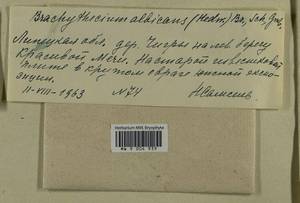 Brachythecium albicans (Hedw.) Br., Sch., Gmb.
Липецкая обл., дер. Чигры на лев. берегу
Красивой Мечи. На старой известняковой
плите в крутом овраге южной экспо-
зиции.
11-VIII-1963 №74
Herbarium MW, Bryophyta